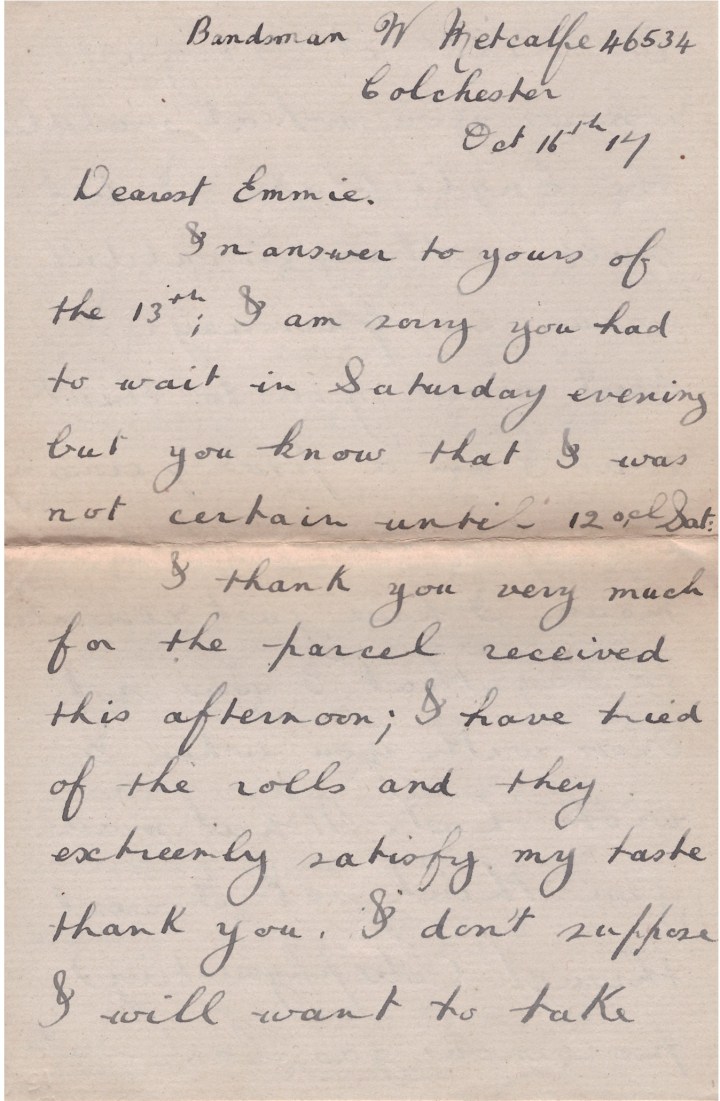 Bandsman W Metcalfe 46534
Colchester
Oct 16th 17
Dearest Emmie.
In answer to yours of
the 13th; I am sorry you had
to wait in Saturday evening
but you know that I was
not certain until 12 ocl Sat:
I thank you very much
for the parcel received
this afternoon; I have tried
of the rolls and they
extreemly satisfy my taste
thank you. I don't suppose
I will want to take